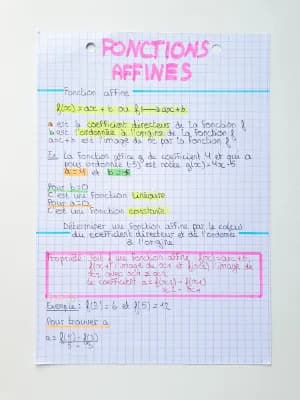 FONCTIONS
AFFINES
Fonction affine
f(x) = ax + b ou f: x ⟼ ax + b.
a est le coefficient directeur de la fonction f
b est l'ordonnée à l'origine de la fonction f
ax + b est l'image de x par la fonction f.
Ex: La fonction affine g de coefficient 4 et que a
pour ordonnée (-5) est notée g(x) = 4x - 5
a = 4 et b = -5
Pour b = 0
C'est une fonction linéaire
Pour a = 0
C'est une fonction constante
Déterminer une fonction affine par le calcul
du coefficient directeur et de l'ordonnée
à l'origine
Propriété: Soit f une fonction affine f(x) = ax + b,
f(x1) l'image de x1 et f(x2) l'image de
x2 avec x1 ≠ x2
Le coefficient a = f(x2) - f(x1)
x2 - x1
Exemple: f(2) = 6 et f(5) = 12
Pour trouver a